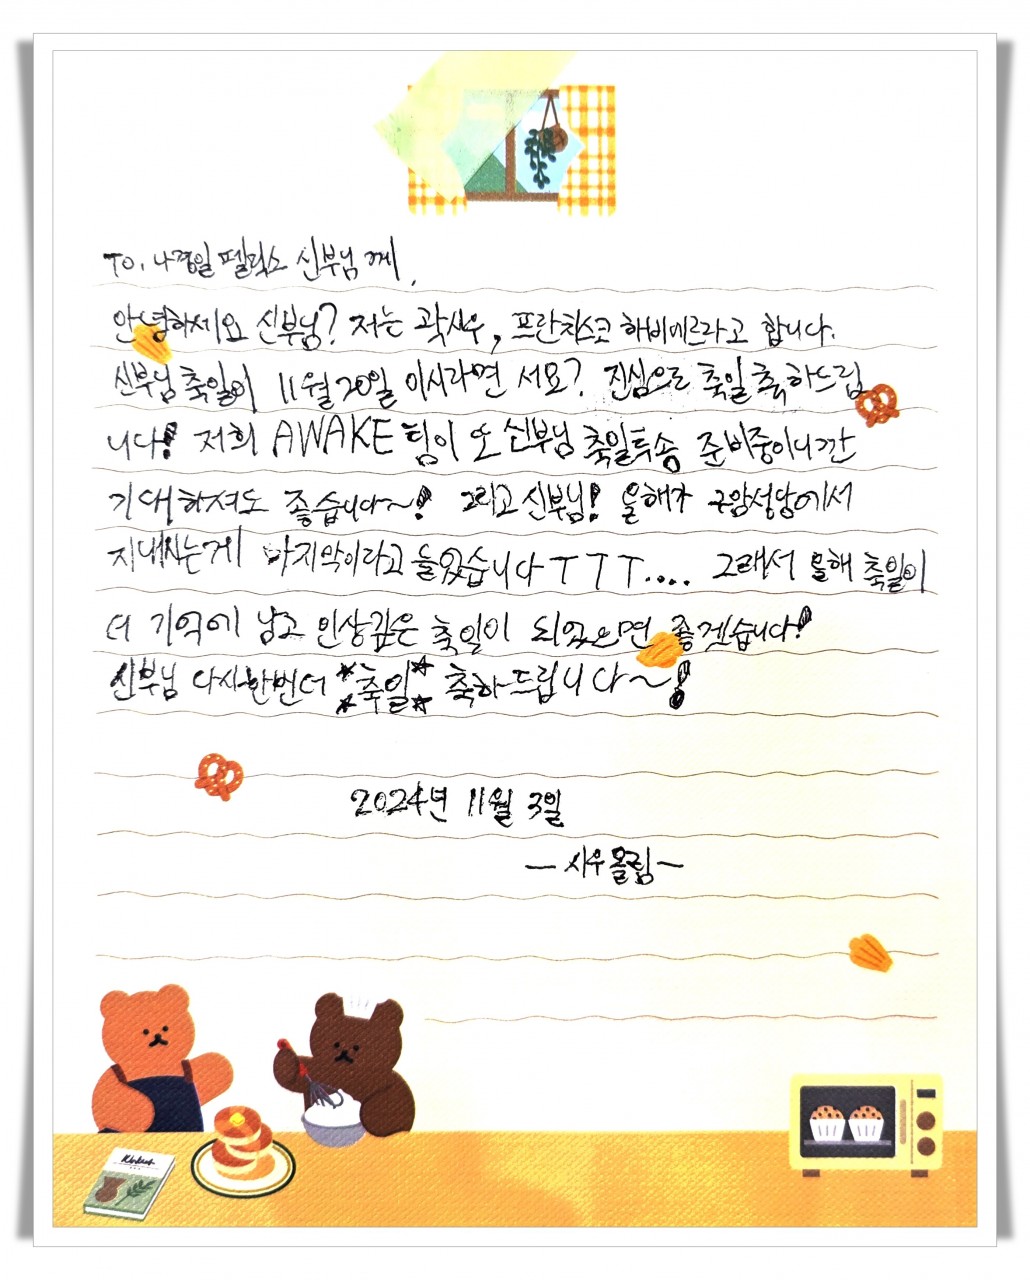 To. 나경일 펠릭스 신부님께.
안녕하세요 신부님? 저는 곽시우, 프란치스코 하비에르라고 합니다.
신부님 축일이 11월 20일 이시라면서요? 진심으로 축일 축하드립
니다! 저희 AWAKE 팀이 또 신부님 축일특송 준비중이니깐
기대하셔도 좋습니다~! 그리고 신부님! 올해가 구암성당에서
지내시는게 마지막이라고 들었습니다 T T T.... 그래서 올해 축일이
더 기억에 남고 인상깊은 축일이 되었으면 좋겠습니다!
신부님 다시한번더 *축일* 축하드립니다~!
2024년 11월 3일
- 시우올림 ~